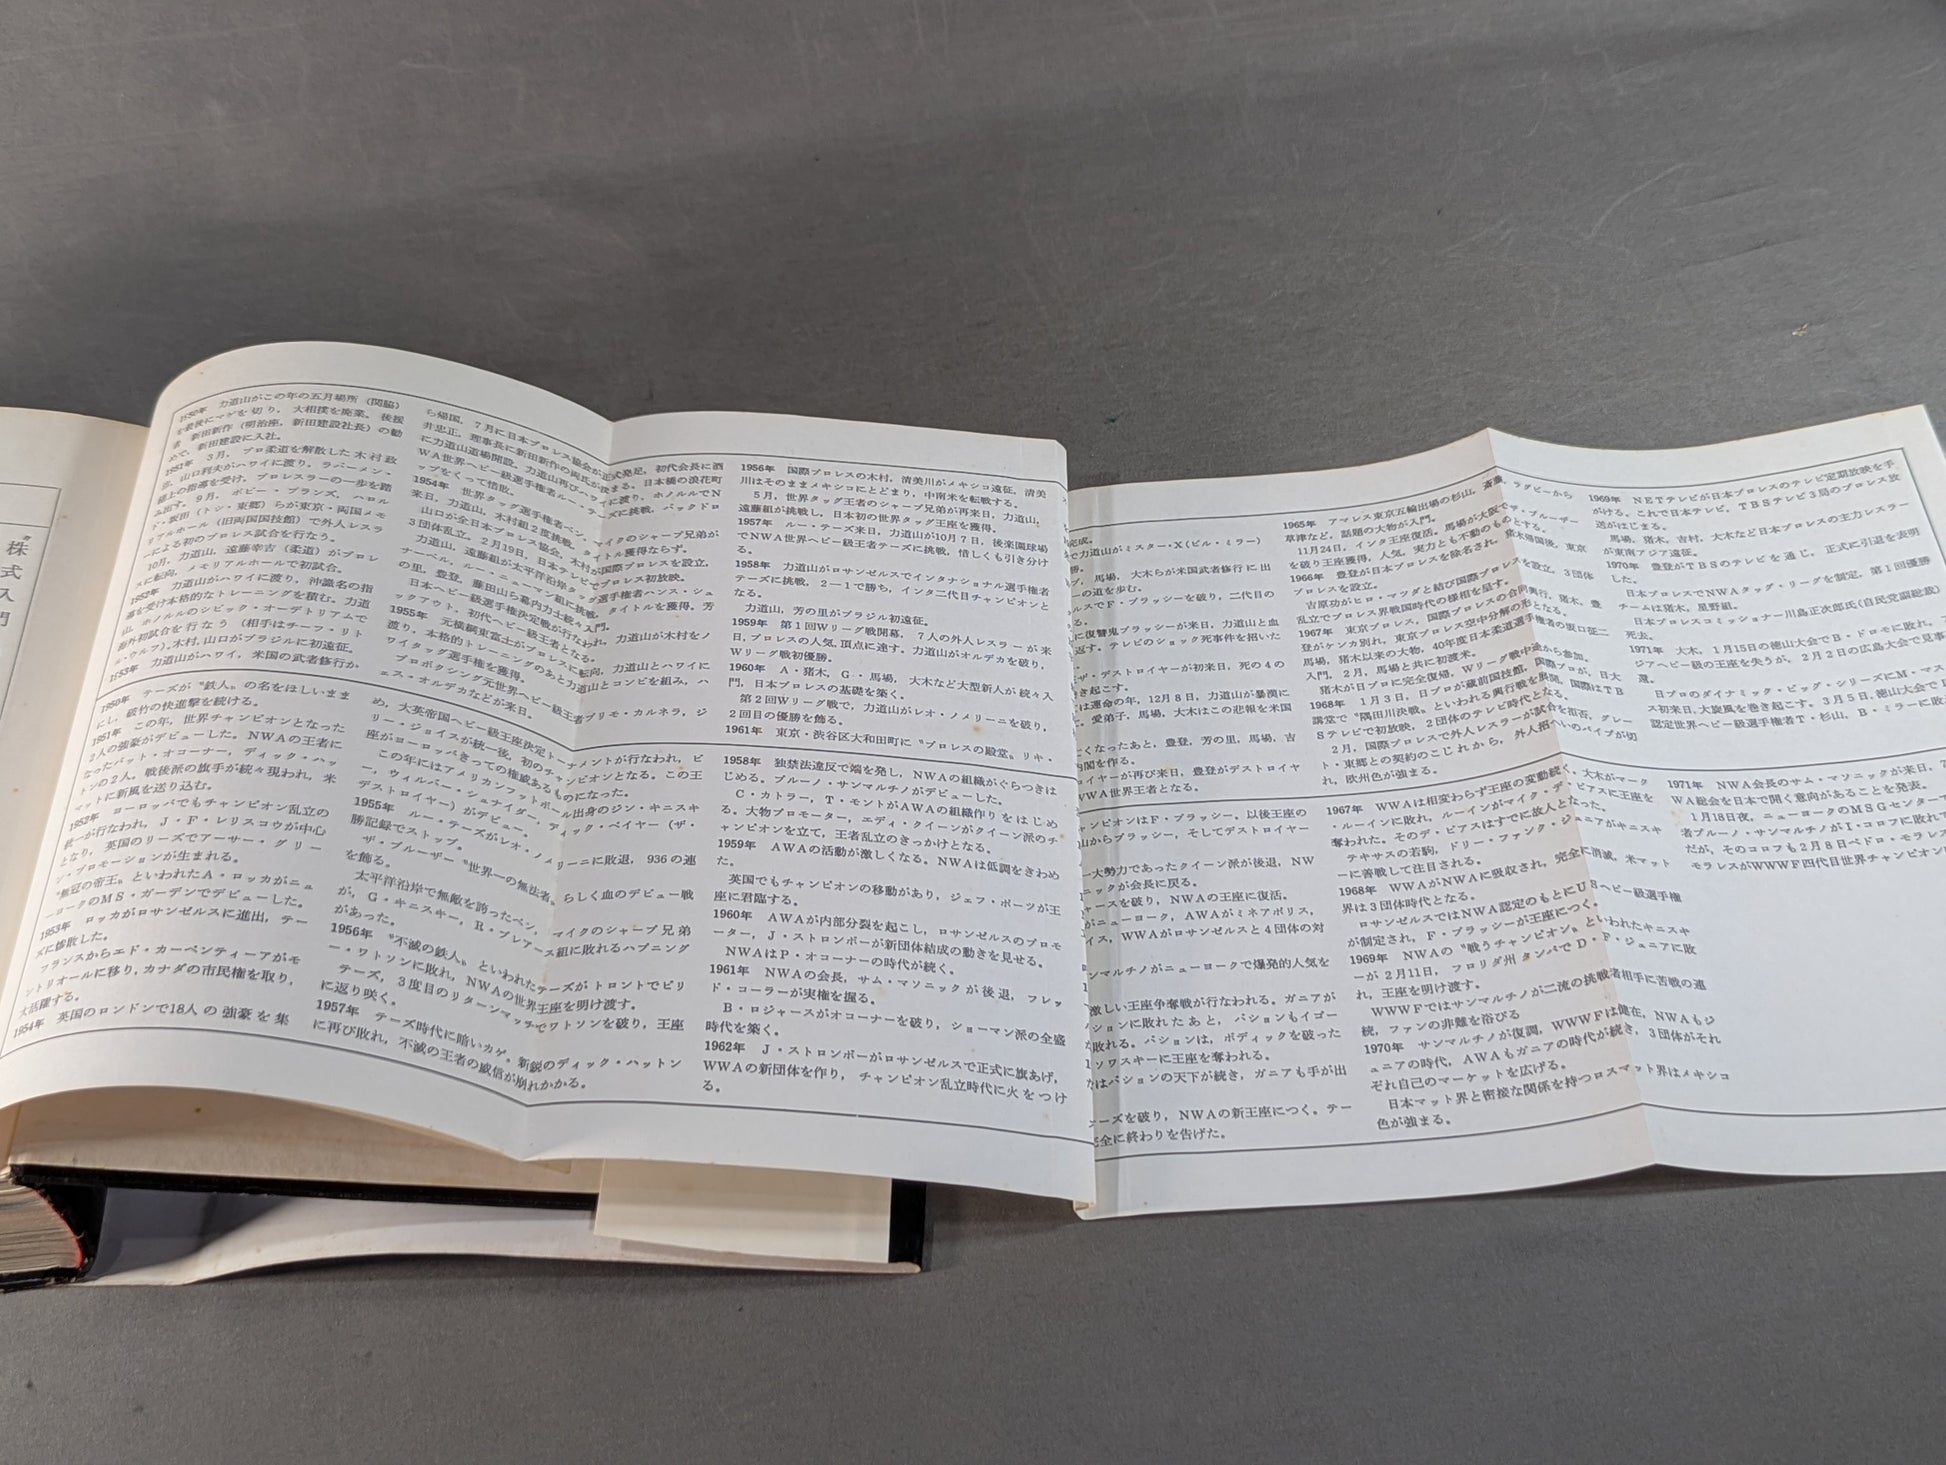 〝株式入門
1950年　力道山がこの年の五月場所（関脇）
を最後にマゲを切り，大相撲を廃業。後援
者　新田新作（明治座，新田建設社長）の勧
めで，新田建設に入社。
1951年　3月，プロ柔道を解散した木村政
山口利夫がハワイに渡り，ラバーメン・
の指導を受け，プロレスラーの一歩を踏
み出す。9月，ボビー・ブランズ，ハロル
ド・坂田（トシ・東郷）らが東京・両国メモ
リアルホール（旧両国国技館）で外人レスラ
ーによる初のプロレス試合を行なう。
10月，力道山，遠藤幸吉（柔道）がプロレ
スに転向，メモリアルホールで初試合。
1952年　力道山がハワイに渡り，沖識名の指
導を受け本格的なトレーニングを積む。力道
山，ホノルルのシビック・オーデトリアムで
海外初試合を行なう（相手はチーフ・リト
ル・ウルフ）。木村，山口がブラジルに初遠征。
1953年　力道山がハワイ，米国の武者修行か
ら帰国，7月に日本プロレス協会が正式発足，初代会長に酒
井忠正，理事長に新田新作の両氏が決まる。日本橋の浪花町
に力道山道場開設。力道山再びハワイに渡り，ホノルルでN
WA世界ヘビー級選手権者ルー・テーズに挑戦，バックドロ
ップをくって惜敗。
1954年　世界タッグ選手権者ベン，マイクのシャープ兄弟が
来日，力道山，木村組2度挑戦，タイトル獲得ならず。
山口が全日本プロレス協会，木村が国際プロレスを設立，
3団体乱立。2月19日，日本テレビでプロレス初放映。
力道山，遠藤組が太平洋沿岸タッグ選手権者ハンス・シュ
ナーベル，ルー・ニューマン組に挑戦，タイトルを獲得。芳
の里，豊登，藤田山ら幕内力士続々入門。
日本ヘビー級選手権決定戦が行なわれ，力道山が木村をノ
ックアウト，初代ヘビー級王者となる。
1955年　元横綱東富士がプロレスに転向，力道山とハワイに
渡り，本格的トレーニングのあと力道山とコンビを組み，ハ
ワイタッグ選手権を獲得。
プロボクシング元世界ヘビー級王者プリモ・カルネラ，ジ
ェス・オルテガなどが来日。
1956年　国際プロレスの木村，清美川がメキシコ遠征，清美
川はそのままメキシコにとどまり，中南米を転戦する。
5月，世界タッグ王者のシャープ兄弟が再来日，力道山，
遠藤組が挑戦し，日本初の世界タッグ王座を獲得。
1957年　ルー・テーズ来日，力道山が10月7日，後楽園球場
でNWA世界ヘビー級王者テーズに挑戦，惜しくも引き分け
る。
1958年　力道山がロサンゼルスでインタナショナル選手権者
テーズに挑戦，2―1で勝ち，インタ二代目チャンピオンと
なる。
力道山，芳の里がブラジル初遠征。
1959年　第1回Wリーグ戦開幕，7人の外人レスラーが来
日，プロレスの人気，頂点に達す。力道山がオルテガを破り，
Wリーグ戦初優勝。
1960年　A・猪木，G・馬場，大木など大型新人が続々入
門，日本プロレスの基礎を築く。
第2回Wリーグ戦で，力道山がレオ・ノメリーニを破り，
2回目の優勝を飾る。
1961年　東京・渋谷区大和田町に〝プロレスの殿堂〟リキ・
完成。
で力道山がミスター・X（ビル・ミラー）
勝。
プ，馬場，大木らが米国武者修行に出
ーの道を歩む。
ルスでF・ブラッシーを破り，二代目の
る。
に復讐鬼ブラッシーが来日，力道山と血
返す。テレビのショック死事件を招いた
ザ・デストロイヤーが初来日，死の4の
き起こす。
は運命の年，12月8日，力道山が暴漢に
愛弟子，馬場，大木はこの悲報を米国
くなったあと，豊登，芳の里，馬場，吉
内閣を作る。
ロイヤーが再び来日，豊登がデストロイヤ
WWA世界王者となる。
1965年　アマレス東京五輪出場の杉山，斎藤，ラグビーから
草津など，話題の大物が入門。
11月24日，インタ王座復活。馬場が大阪でザ・ブルーザー
を破り王座獲得，人気，実力とも不動のものとする。
1966年　豊登が日本プロレスを除名され，猪木帰国後，東京
プロレスを設立。
吉原功がヒロ・マツダと結び国際プロレスを設立，3団体
乱立でプロレス界戦国時代の様相を呈す。
1967年　東京プロレス，国際プロレスの合同興行。猪木，豊
登がケンカ別れ，東京プロレス空中分解の形となる。
馬場，猪木以来の大物，40年度日本柔道選手権者の坂口征二
入門，2月，馬場と共に初渡米。
猪木が日プロに完全復帰，Wリーグ戦中途から参加。
1968年　1月3日，日プロが蔵前国技館，国際プロが，日大
講堂で〝隅田川決戦〟といわれる興行戦を展開，国際はTB
Sテレビで初放映，2団体のテレビ時代となる。
2月，国際プロレスで外人レスラーが試合を拒否，グレー
ト・東郷との契約のこじれから，外人招へいのパイプが切
れ，欧州色が強まる。
1969年　NETテレビが日本プロレスのテレビ定期放映を手
がける。これで日本テレビ，TBSテレビ3局のプロレス放
送がはじまる。
馬場，猪木，吉村，大木など日本プロレスの主力レスラー
が東南アジア遠征。
1970年　豊登がTBSのテレビを通じ，正式に引退を表明
した。
日本プロレスでNWAタッグ・リーグを制定，第1回優勝
チームは猪木，星野組。
日本プロレスコミッショナー川島正次郎氏（自民党副総裁）
死去。
1971年　大木，1月15日の徳山大会でB・ドロモに敗れ，ア
ジアヘビー級の王座を失うが，2月2日の広島大会で見事
還。
日プロのダイナミック・ビッグ・シリーズにM・マス
ス初来日，大旋風を巻き起こす。3月5日，徳山大会で I
認定世界ヘビー級選手権者T・杉山，B・ミラーに敗
1950年　テーズが〝鉄人〟の名をほしいまま
にし，破竹の快進撃を続ける。
1951年　この年，世界チャンピオンとなった
2人の強豪がデビューした。NWAの王者に
なったパット・オコーナー，ディック・ハッ
トンの2人。戦後派の旗手が続々現われ，米
マットに新風を送り込む。
1952年　ヨーロッパでもチャンピオン乱立の
統一が行なわれ，J・F・レリスコウが中心
となり，英国のリーズでアーサー・グリー
ン・プロモーションが生まれる。
〝無冠の帝王〟といわれたA・ロッカがニュ
ーヨークのMS・ガーデンでデビューした。
1953年　ロッカがロサンゼルスに進出，テー
ズに惨敗した。
フランスからエド・カーペンティーアがモ
ントリオールに移り，カナダの市民権を取り，
大活躍する。
1954年　英国のロンドンで18人の強豪を集
め，大英帝国ヘビー級王座決定トーナメントが行なわれ，ビ
リー・ジョイスが統一後，初のチャンピオンとなる。この王
座がヨーロッパきっての権威あるものになった。
この年にはアメリカンフットボール出身のジン・キニスキ
ー，ウィルバー・シュナイダー，ディック・ベイヤー（ザ・
デストロイヤー）がデビュー。
1955年　ルー・テーズがレオ・ノメリーニに敗退，936の連
勝記録でストップ。
ザ・ブルーザー〝世界一の無法者〟らしく血のデビュー戦
を飾る。
太平洋沿岸で無敵を誇ったベン，マイクのシャープ兄弟
が，G・キニスキー，R・ブレアース組に敗れるハプニング
があった。
1956年　〝不滅の鉄人〟といわれたテーズがトロントでビリ
ー・ワトソンに敗れ，NWAの世界王座を明け渡す。
テーズ，3度目のリターンマッチでワトソンを破り，王座
に返り咲く。
1957年　テーズ時代に暗いカゲ。新鋭のディック・ハットン
に再び敗れ，不滅の王者の威信が崩れかかる。
1958年　独禁法違反で端を発し，NWAの組織がぐらつきは
じめる。ブルーノ・サンマルチノがデビューした。
C・カトラー，T・モントがAWAの組織作りをはじめ
る。大物プロモーター，エディ・クイーンがクイーン派のチ
ャンピオンを立て，王者乱立のきっかけとなる。
1959年　AWAの活動が激しくなる。NWAは低調をきわめ
た。
英国でもチャンピオンの移動があり，ジェフ・ポーツが王
座に君臨する。
1960年　AWAが内部分裂を起こし，ロサンゼルスのプロモ
ーター，J・ストロンボーが新団体結成の動きを見せる。
NWAはP・オコーナーの時代が続く。
1961年　NWAの会長，サム・マソニックが後退，フレッ
ド・コーラーが実権を握る。
B・ロジャースがオコーナーを破り，ショーマン派の全盛
時代を築く。
1962年　J・ストロンボーがロサンゼルスで正式に旗あげ，
WWAの新団体を作り，チャンピオン乱立時代に火をつけ
る。
ャンピオンはF・ブラッシー。以後王座の
山からブラッシー，そしてデストロイヤー
一大勢力であったクイーン派が後退，NW
ニックが会長に戻る。
ャースを破り，NWAの王座に復活。
がニューヨーク，AWAがミネアポリス，
イス，WWAがロサンゼルスと4団体の対
ンマルチノがニューヨークで爆発的人気を
激しい王座争奪戦が行なわれる。ガニアが
ションに敗れたあと，バションもイゴー
敗れる。バションは，ボディックを破った
リソワスキーに王座を奪われる。
はバションの天下が続き，ガニアも手が出
ーズを破り，NWAの新王座につく。テー
完全に終わりを告げた。
1967年　WWAは相変わらず王座の変動続く。大木がマーク
・ルーインに敗れ，ルーインがマイク・デ・ビアスに王座を
奪われた。そのデ・ビアスはすでに故人となった。
テキサスの若駒，ドリー・ファンク・ジュニアがキニスキ
ーに善戦して注目される。
1968年　WWAがNWAに吸収され，完全に消滅，米マット
界は3団体時代となる。
ロサンゼルスではNWA認定のもとにUSヘビー級選手権
が制定され，F・ブラッシーが王座につく。
1969年　NWAの〝戦うチャンピオン〟といわれたキニスキ
ーが2月11日，フロリダ州タンパでD・F・ジュニアに敗
れ，王座を明け渡す。
WWWFではサンマルチノが二流の挑戦者相手に苦戦の連
続，ファンの非難を浴びる
1970年　サンマルチノが復調，WWWFは健在，NWAもジ
ュニアの時代，AWAもガニアの時代が続き，3団体がそれ
ぞれ自己のマーケットを広げる。
日本マット界と密接な関係を持つロスマット界はメキシコ
色が強まる。
1971年　NWA会長のサム・マソニックが来日，7
WA総会を日本で開く意向があることを発表。
1月18日夜，ニューヨークのMSGセンターで
者ブルーノ・サンマルチノがI・コロフに敗れて
だが，そのコロフも2月8日ペドロ・モラレス
モラレスがWWWF四代目世界チャンピオン